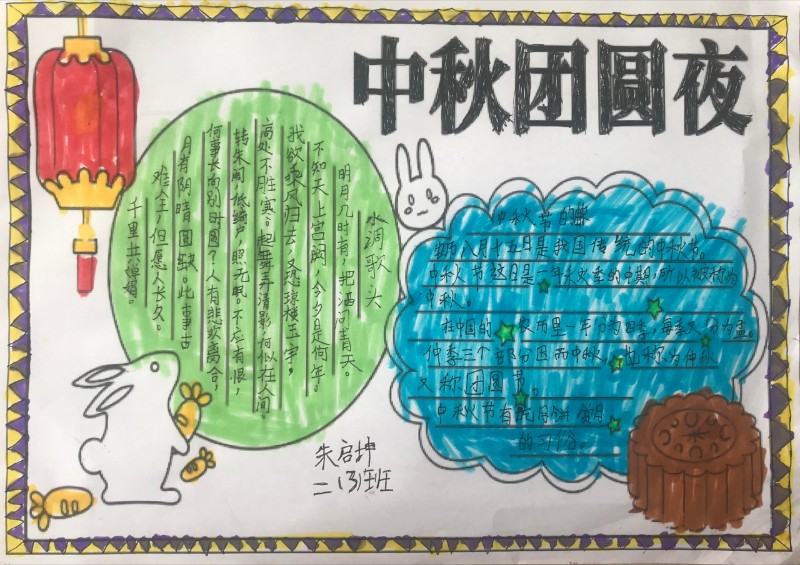 中秋团圆夜
水调歌头
明月几时有，把酒问青天。
不知天上宫阙，今夕是何年。
我欲乘风归去，又恐琼楼玉宇，
高处不胜寒。起舞弄清影，何似在人间。
转朱阁，低绮户，照无眠。不应有恨，
何事长向别时圆？人有悲欢离合，
月有阴晴圆缺。此事古
难全，但愿人长久。
千里共婵娟。
中秋节的
八月十五日是我国传统的中秋节。
中秋节这日是一年秋季的中期，所以被称为
中秋。
在中国的农历里一年分为四季，每季又分为孟。
仲季三个部分因而中秋也称为仲秋
又称团圆节。
中秋节有吃月饼 赏月
的习俗。
朱启坤
二(3)班